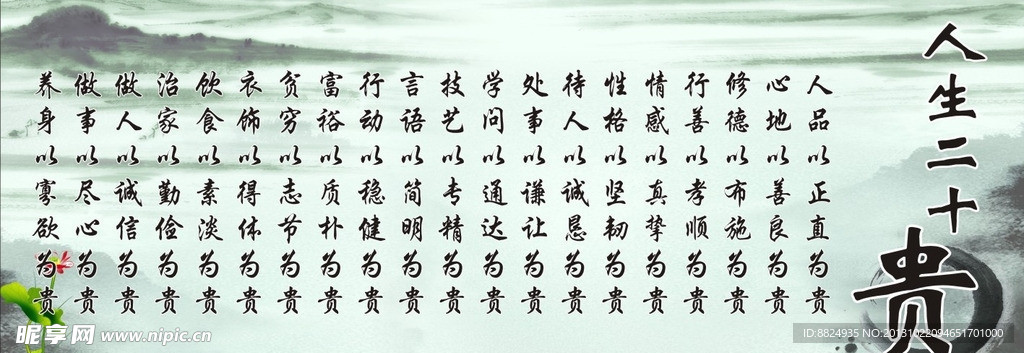 人生二十贵
人品以正直为贵
心地以善良为贵
修德以布施为贵
行善以孝顺为贵
情感以真挚为贵
性格以坚韧为贵
待人以诚恳为贵
处事以谦让为贵
学问以通达为贵
技艺以专精为贵
言语以简明为贵
行动以稳健为贵
富裕以质朴为贵
贫穷以志节为贵
衣饰以得体为贵
饮食以素淡为贵
治家以勤俭为贵
做人以诚信为贵
做事以尽心为贵
养身以寡欲为贵
昵享网 www.nipic.cn
ID:8824935 NO:20131022094651701000